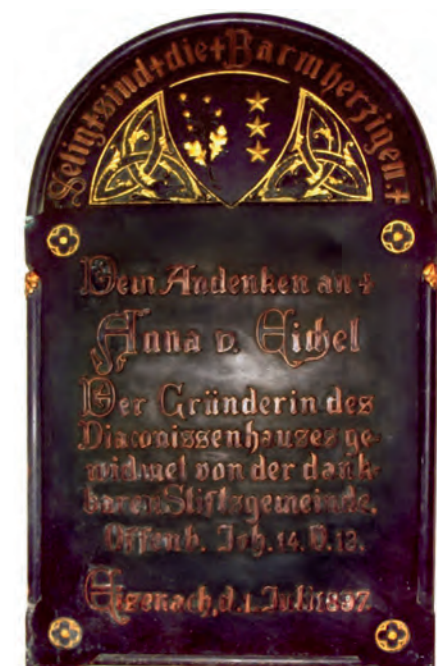 Selig + sind + die + Barmherzigen. +
Dem Andenken an +
Anna v. Eichel
Der Gründerin des
Diaconissenhauses ge-
widmet von der dank-
baren Stiftsgemeinde.
Offenb. Joh. 14. V. 13.
Eisenach, d. 1. Juli 1897